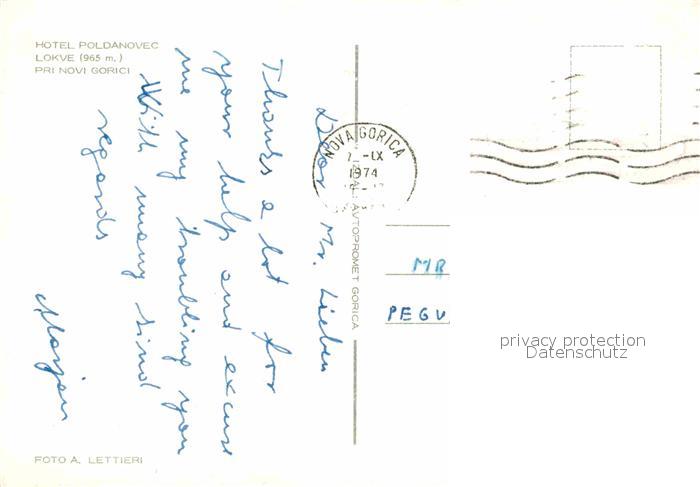 HOTEL POLDANOVEC
LOKVE (965 m.)
PRI NOVI GORICI
Dear Mr.
Thanks a lot for
your help and excuse
me my troubling you
With many kind
regards
Marjan
FOTO A. LETTIERI
AVTOPROMET GORICA
NOVA GORICA
-IX
1974
MR
PEGU
privacy protection
Datenschutz